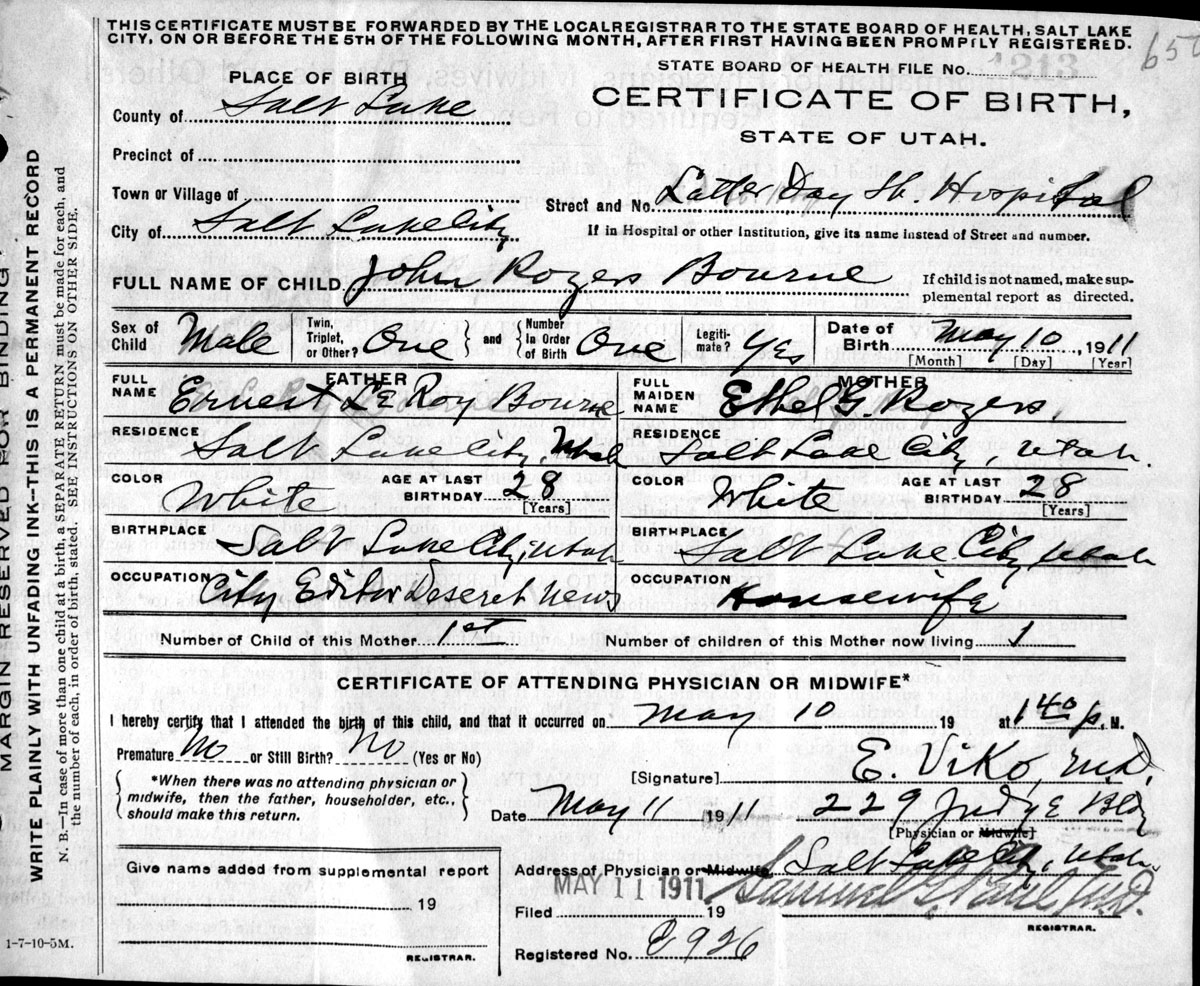 THIS CERTIFICATE MUST BE FORWARDED BY THE LOCAL REGISTRAR TO THE STATE BOARD OF HEALTH, SALT LAKE
CITY, ON OR BEFORE THE 5TH OF THE FOLLOWING MONTH, AFTER FIRST HAVING BEEN PROMPTLY REGISTERED.
STATE BOARD OF HEALTH FILE No. 1213
650
PLACE OF BIRTH
CERTIFICATE OF BIRTH,
STATE OF UTAH.
County of Salt Lake
Precinct of
Town or Village of
Street and No. Latter Day St. Hospital
City of Salt Lake City
If in Hospital or other Institution, give its name instead of Street and number.
FULL NAME OF CHILD John Rogers Bourne
If child is not named, make supplemental report as directed.
Sex of Child Male
Twin, Triplet, or Other? One and Number In Order of Birth One
Legitimate? Yes
Date of Birth May 10, 1911
[Month] [Day] [Year]
FATHER
FULL NAME Ernest Le Roy Bourne
RESIDENCE Salt Lake City, Utah
COLOR White AGE AT LAST BIRTHDAY 28
[Years]
BIRTHPLACE Salt Lake City, Utah
OCCUPATION City Editor Deseret News
MOTHER
FULL MAIDEN NAME Ethel G. Rogers
RESIDENCE Salt Lake City, Utah.
COLOR White AGE AT LAST BIRTHDAY 28
[Years]
BIRTHPLACE Salt Lake City, Utah
OCCUPATION Housewife
Number of Child of this Mother 1st Number of children of this Mother now living 1
CERTIFICATE OF ATTENDING PHYSICIAN OR MIDWIFE*
I hereby certify that I attended the birth of this child, and that it occurred on May 10 19 at 1 40 p. M.
Premature No or Still Birth? No (Yes or No)
*When there was no attending physician or
midwife, then the father, householder, etc.,
should make this return.
[Signature] E. Viko, M.D.
Date May 11 1911 229 Judge Bldg
[Physician or Midwife]
Address of Physician or Midwife Salt Lake City, Utah
Give name added from supplemental report
19
REGISTRAR.
MAY 11 1911
Filed 19
Samuel G. Paul M.D.
REGISTRAR.
Registered No. 926
1-7-10-5M.
MARGIN RESERVED FOR BINDING
WRITE PLAINLY WITH UNFADING INK--THIS IS A PERMANENT RECORD
N. B.—In case of more than one child at a birth, a SEPARATE RETURN must be made for each, and
the number of each, in order of birth, stated. SEE INSTRUCTION ON OTHER SIDE.